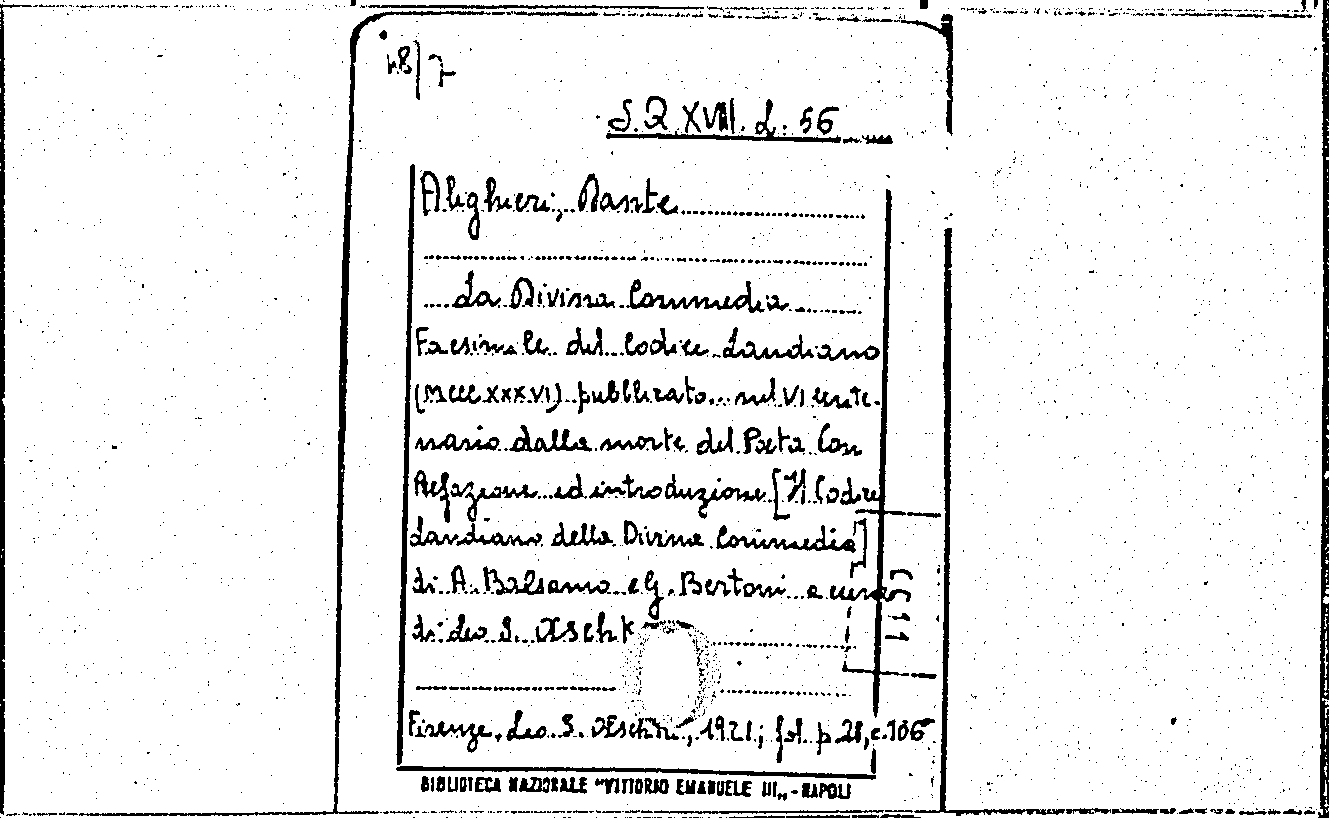 48/7
S.Q. XVIII. L. 56
Alighieri, Dante
La Divina Commedia
Facsimile del Codice Landiano
(MCCCXXXVI) pubblicato nel VI cente-
nario dalla morte del Poeta Con
Prefazione ed introduzione [Il Codice
Landiano della Divina Commedia]
di A. Balsamo e G. Bertoni a cura
di Leo S. Olschk
Firenze, Leo S. Olschki, 1921; fol. p. 28, c. 106
BIBLIOTECA NAZIONALE "VITTORIO EMANUELE III„ - NAPOLI